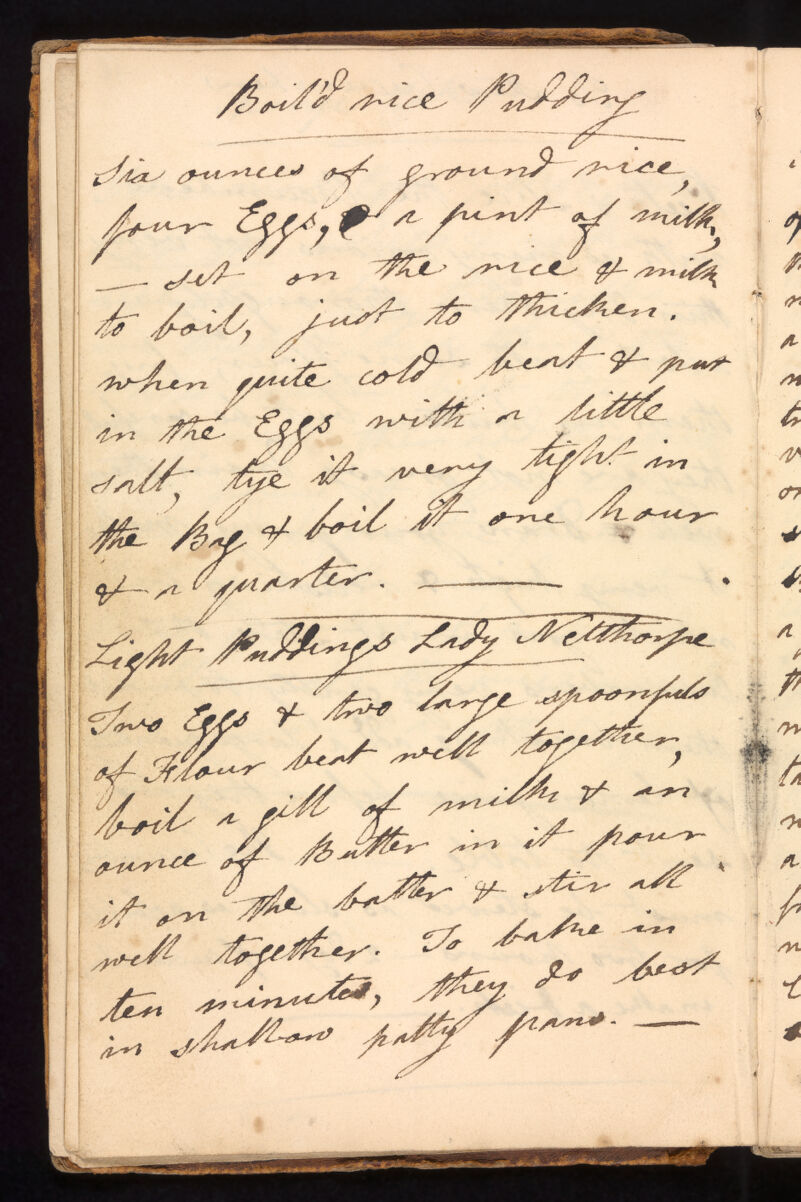 Boil'd rice Pudding
Six ounces of ground rice,
four Eggs, & a pint of milk,
— set on the rice & milk
to boil, just to thicken.
when quite cold beat & put
in the Eggs with a little
salt, tye it very tight in
the Bag & boil it one hour
& a quarter. —
Light Puddings Lady Nelthorpe
Two Eggs & two large spoonfuls
of Flour beat well together,
boil a gill of milk & an
ounce of Butter in it pour
it on the batter & stir all
well together. To bake in
ten minutes, they do best
in shallow patty pans. —